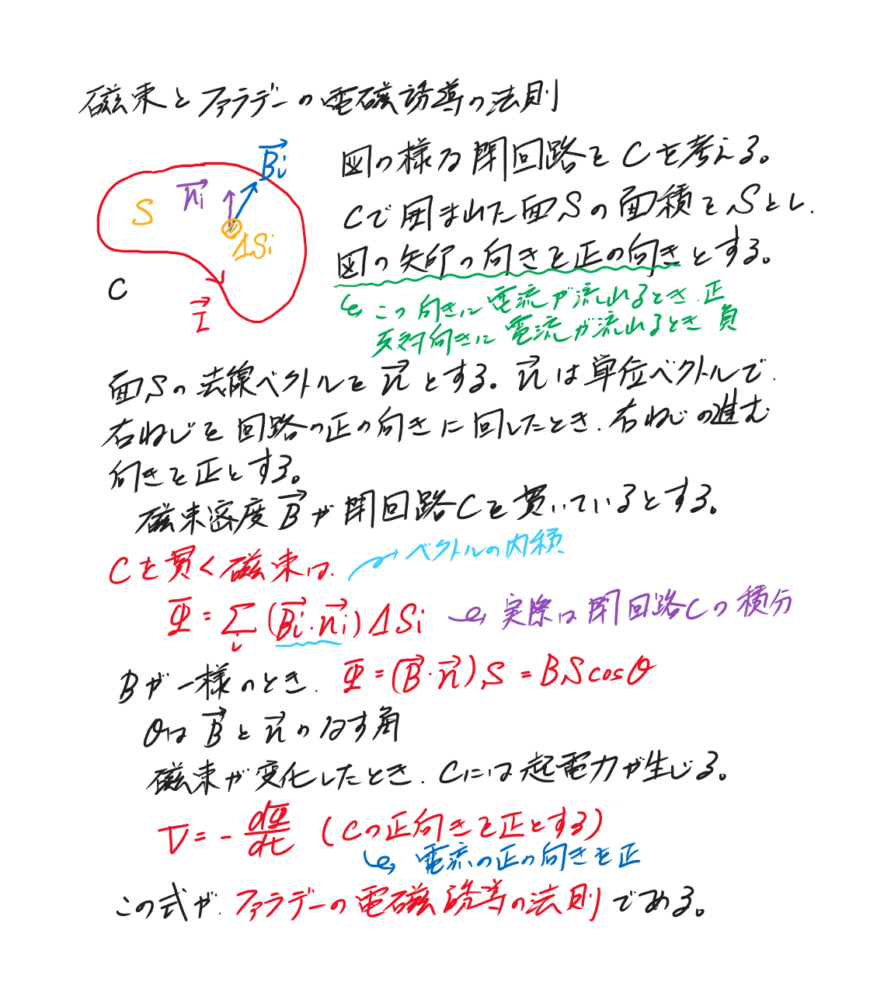 磁束とファラデーの電磁誘導の法則
図の様な閉回路をCを考える。
Cで囲まれた面Sの面積をSとし、
図の矢印の向きを正の向きとする。
この向きに電流が流れるとき、正
反対向きに電流が流れるとき 負
S
n⃗i
B⃗i
ΔSi
C
I⃗
面Sの法線ベクトルをn⃗とする。n⃗は単位ベクトルで、
右ねじを回路の正の向きに回したとき、右ねじの進む
向きを正とする。
磁束密度B⃗が閉回路Cを貫いているとする。
Cを貫く磁束は、 ベクトルの内積
Φ = Σi (B⃗i・n⃗i) ΔSi 実際は閉回路Cの積分
Bが一様のとき、Φ = (B⃗・n⃗)S = BScosθ
θはB⃗とn⃗のなす角
磁束が変化したとき、Cには起電力が生じる。
V = - dΦ/dt (Cの正向きを正とする)
電流の正の向きを正
この式が、ファラデーの電磁誘導の法則である。